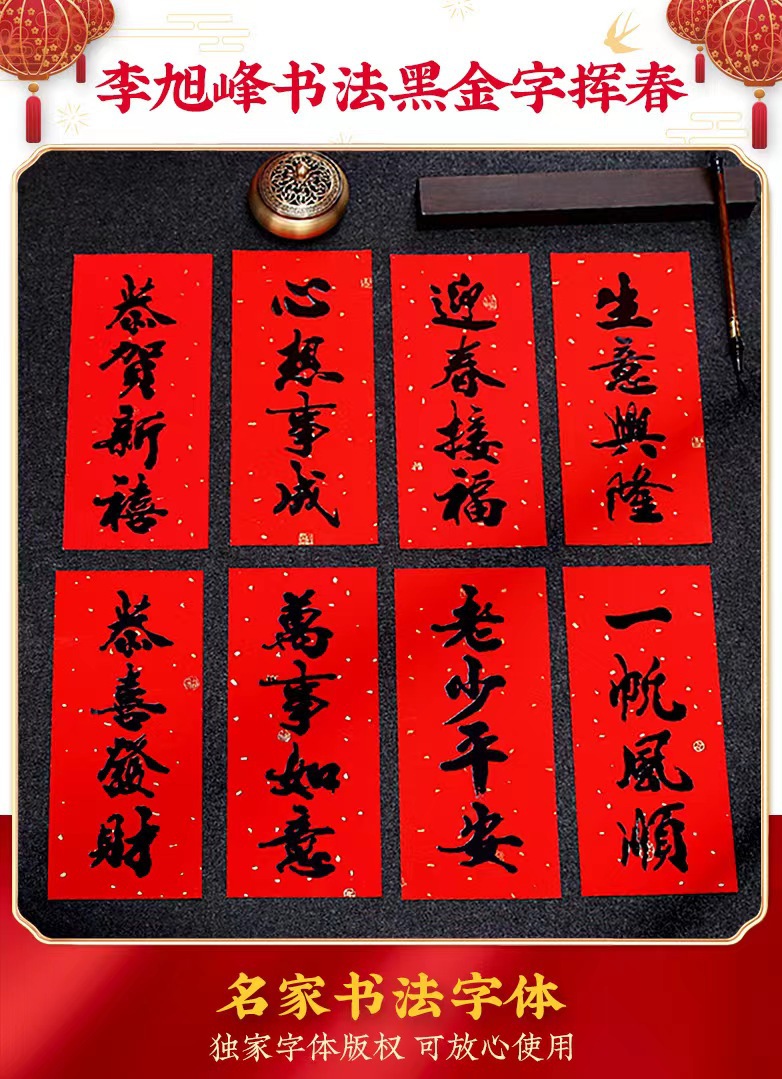 李旭峰书法黑金字挥春
恭賀新禧
心想事成
迎春接福
生意興隆
恭喜發財
萬事如意
老少平安
一帆風順
名家书法字体
独家字体版权 可放心使用